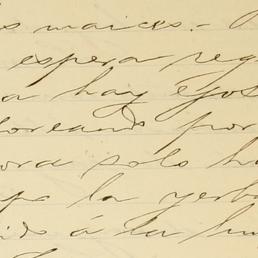 s maices.-
espera reg
a hay ejos
oreando por
ora solo h
la yerba
ido á la hu